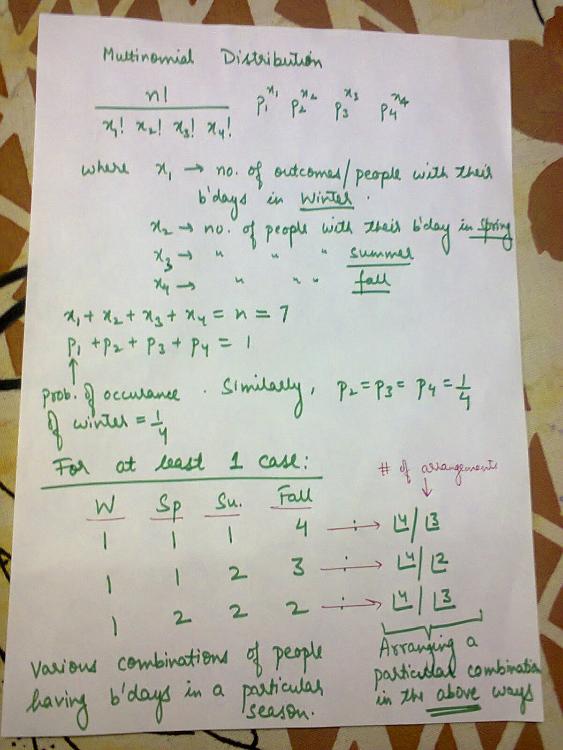 Multinomial Distribution
n!
x₁! x₂! x₃! x₄!
p₁^x₁ p₂^x₂ p₃^x₃ p₄^x₄
where x₁ → no. of outcomes/people with their
b'days in Winter.
x₂ → no. of people with their b'day in Spring
x₃ → " " " summer
x₄ → " " " fall
x₁ + x₂ + x₃ + x₄ = n = 7
p₁ + p₂ + p₃ + p₄ = 1
↑
prob. of occurance . Similarly, p₂ = p₃ = p₄ = 1/4
of winter = 1/4
For at least 1 case:
# of arrangements
↓
W Sp Su. Fall
1 1 1 4 → |4 / |3
1 1 2 3 → |4 / |2
1 2 2 2 → |4 / |3
Various combinations of people
having b'days in a particular
season.
Arranging a
particular combination
in the above ways